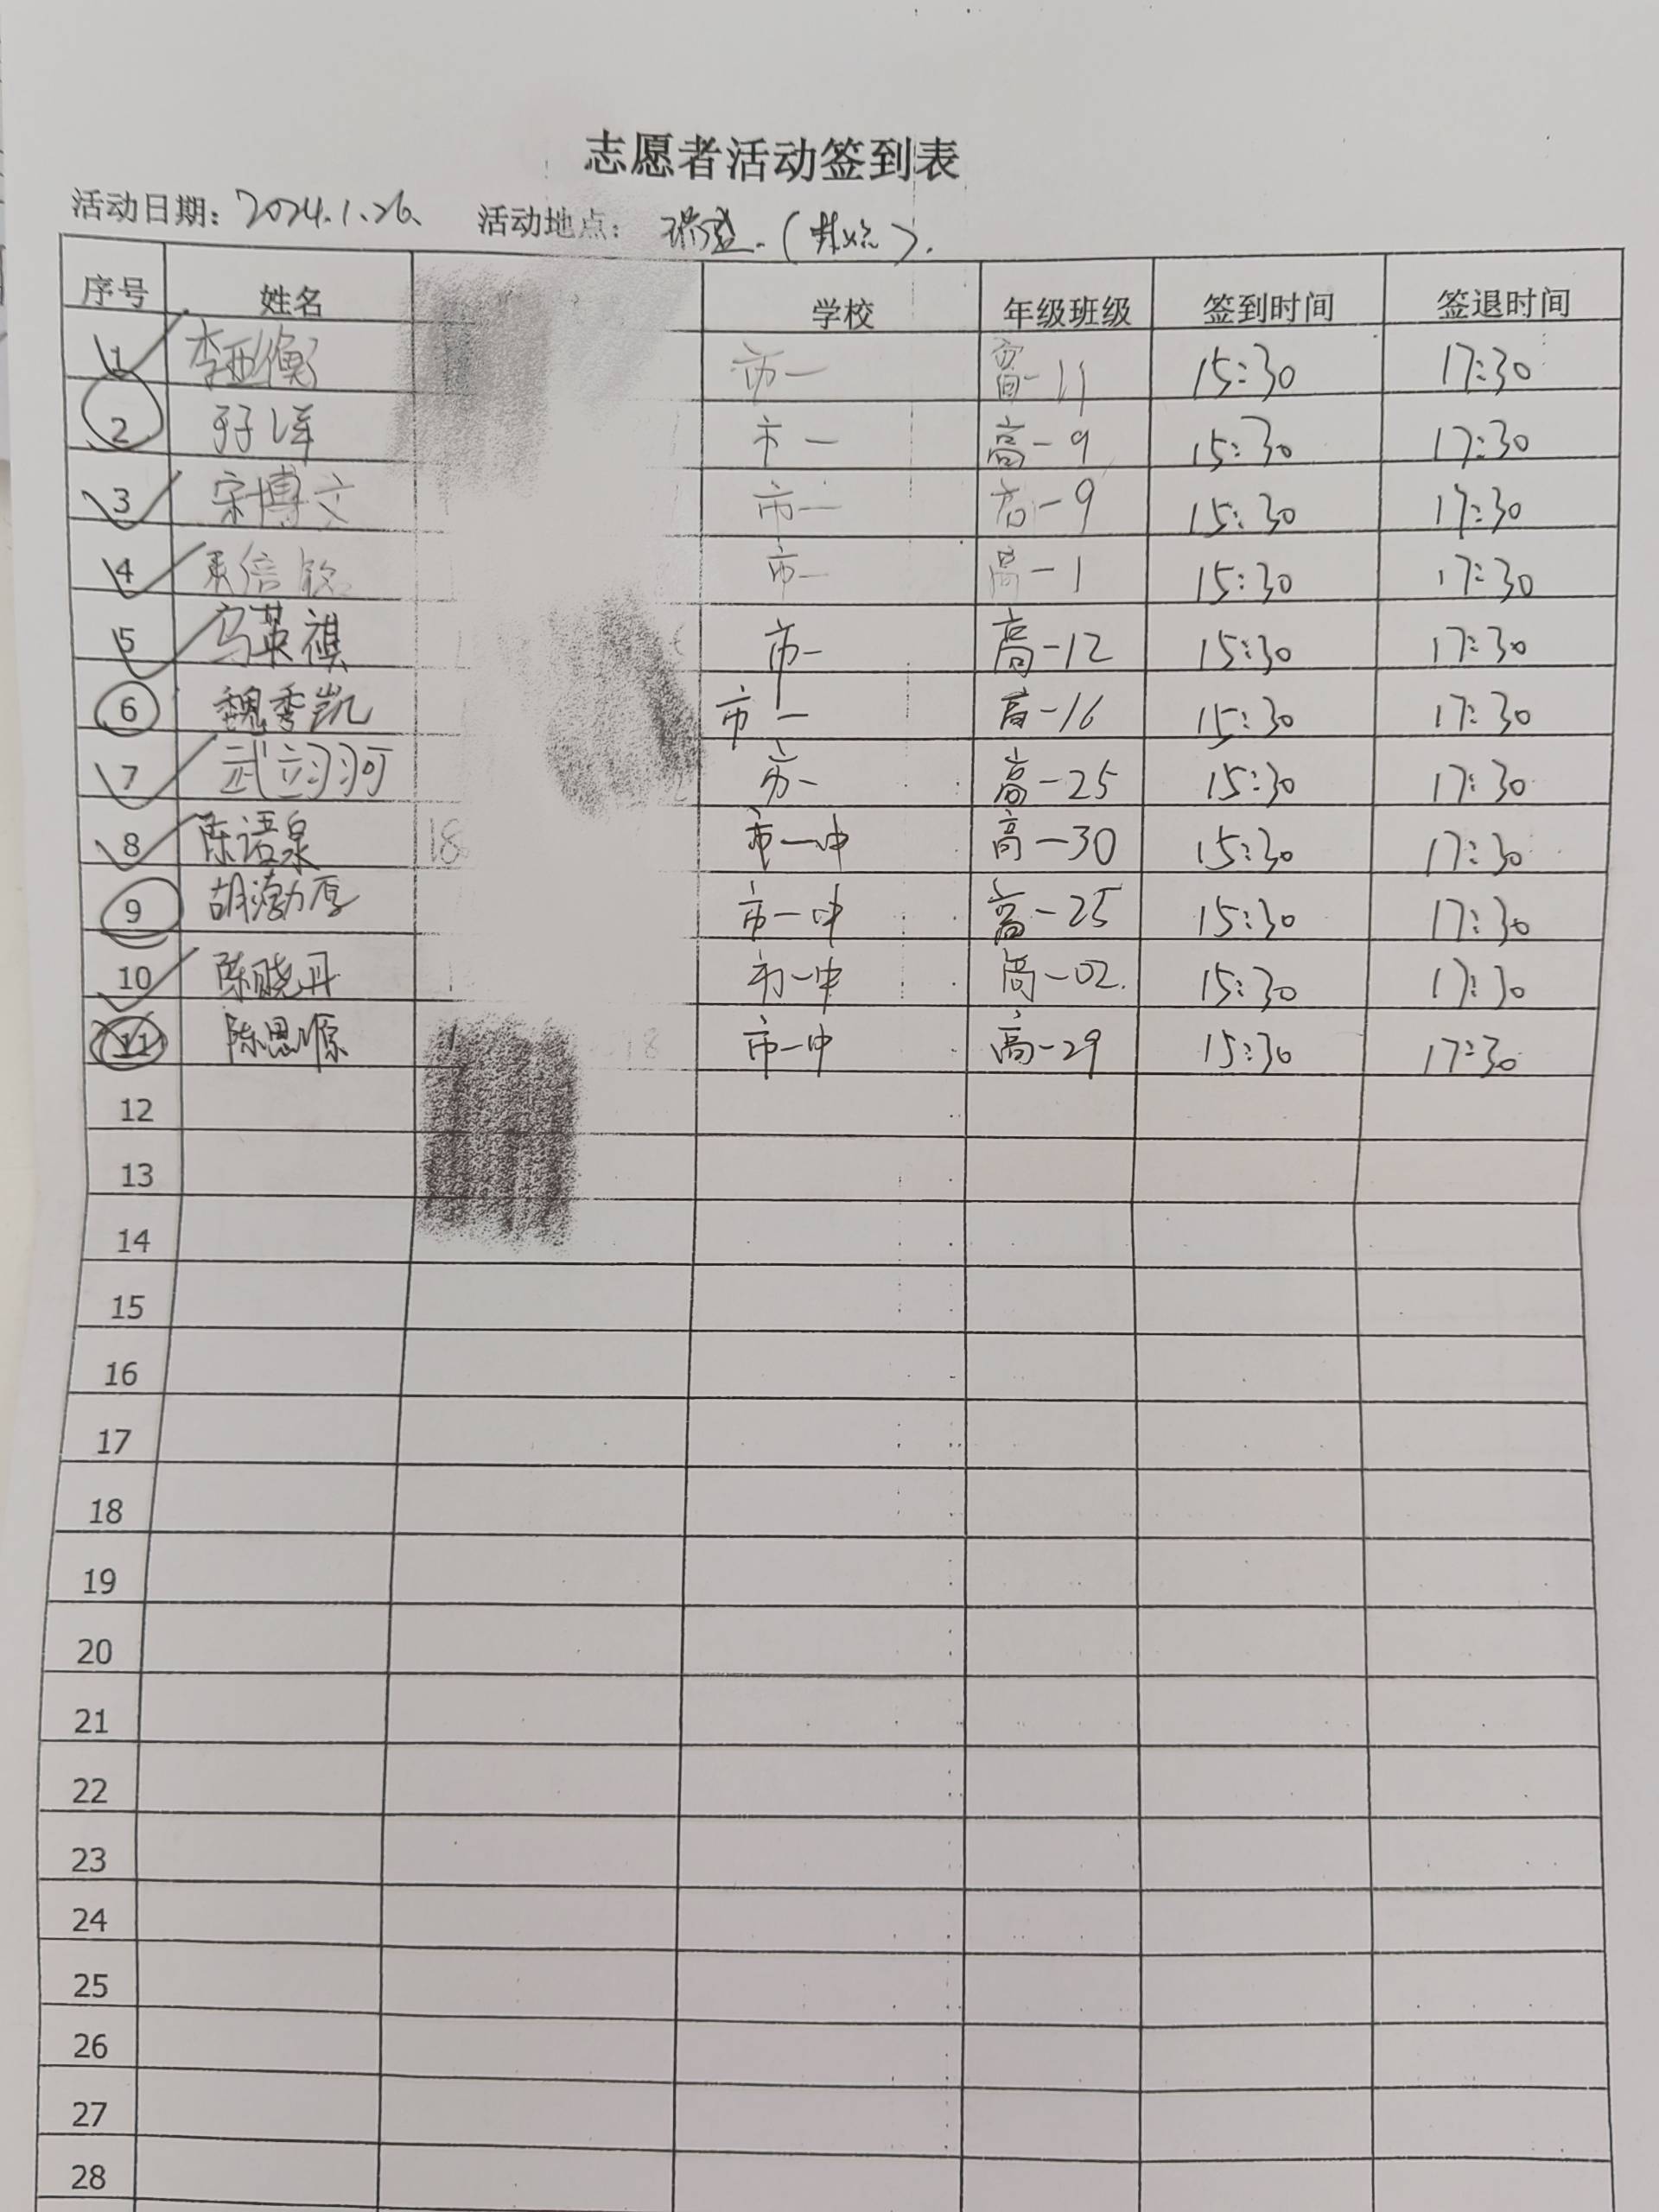 志愿者活动签到表
活动日期: 2024.1.26、 活动地点: 瑞盛.
序号 姓名 学校 年级班级 签到时间 签退时间
1 李亚衡 市一 高一11 15:30 17:30
2 市一 高一9 15:30 17:30
3 宋博文 市一 高一9 15:30 17:30
4 市一 高一1 15:30 17:30
5 马英祺 市一 高一12 15:30 17:30
6 魏季凯 市一 高一16 15:30 17:30
7 市一 高一25 15:30 17:30
8 陈语泉 18 市一中 高一30 15:30 17:30
9 胡渤厚 市一中 高一25 15:30 17:30
10 陈晓丹 市一中 高一02. 15:30 17:30
11 陈思源 18 市一中 高一29 15:30 17:30
12
13
14
15
16
17
18
19
20
21
22
23
24
25
26
27
28